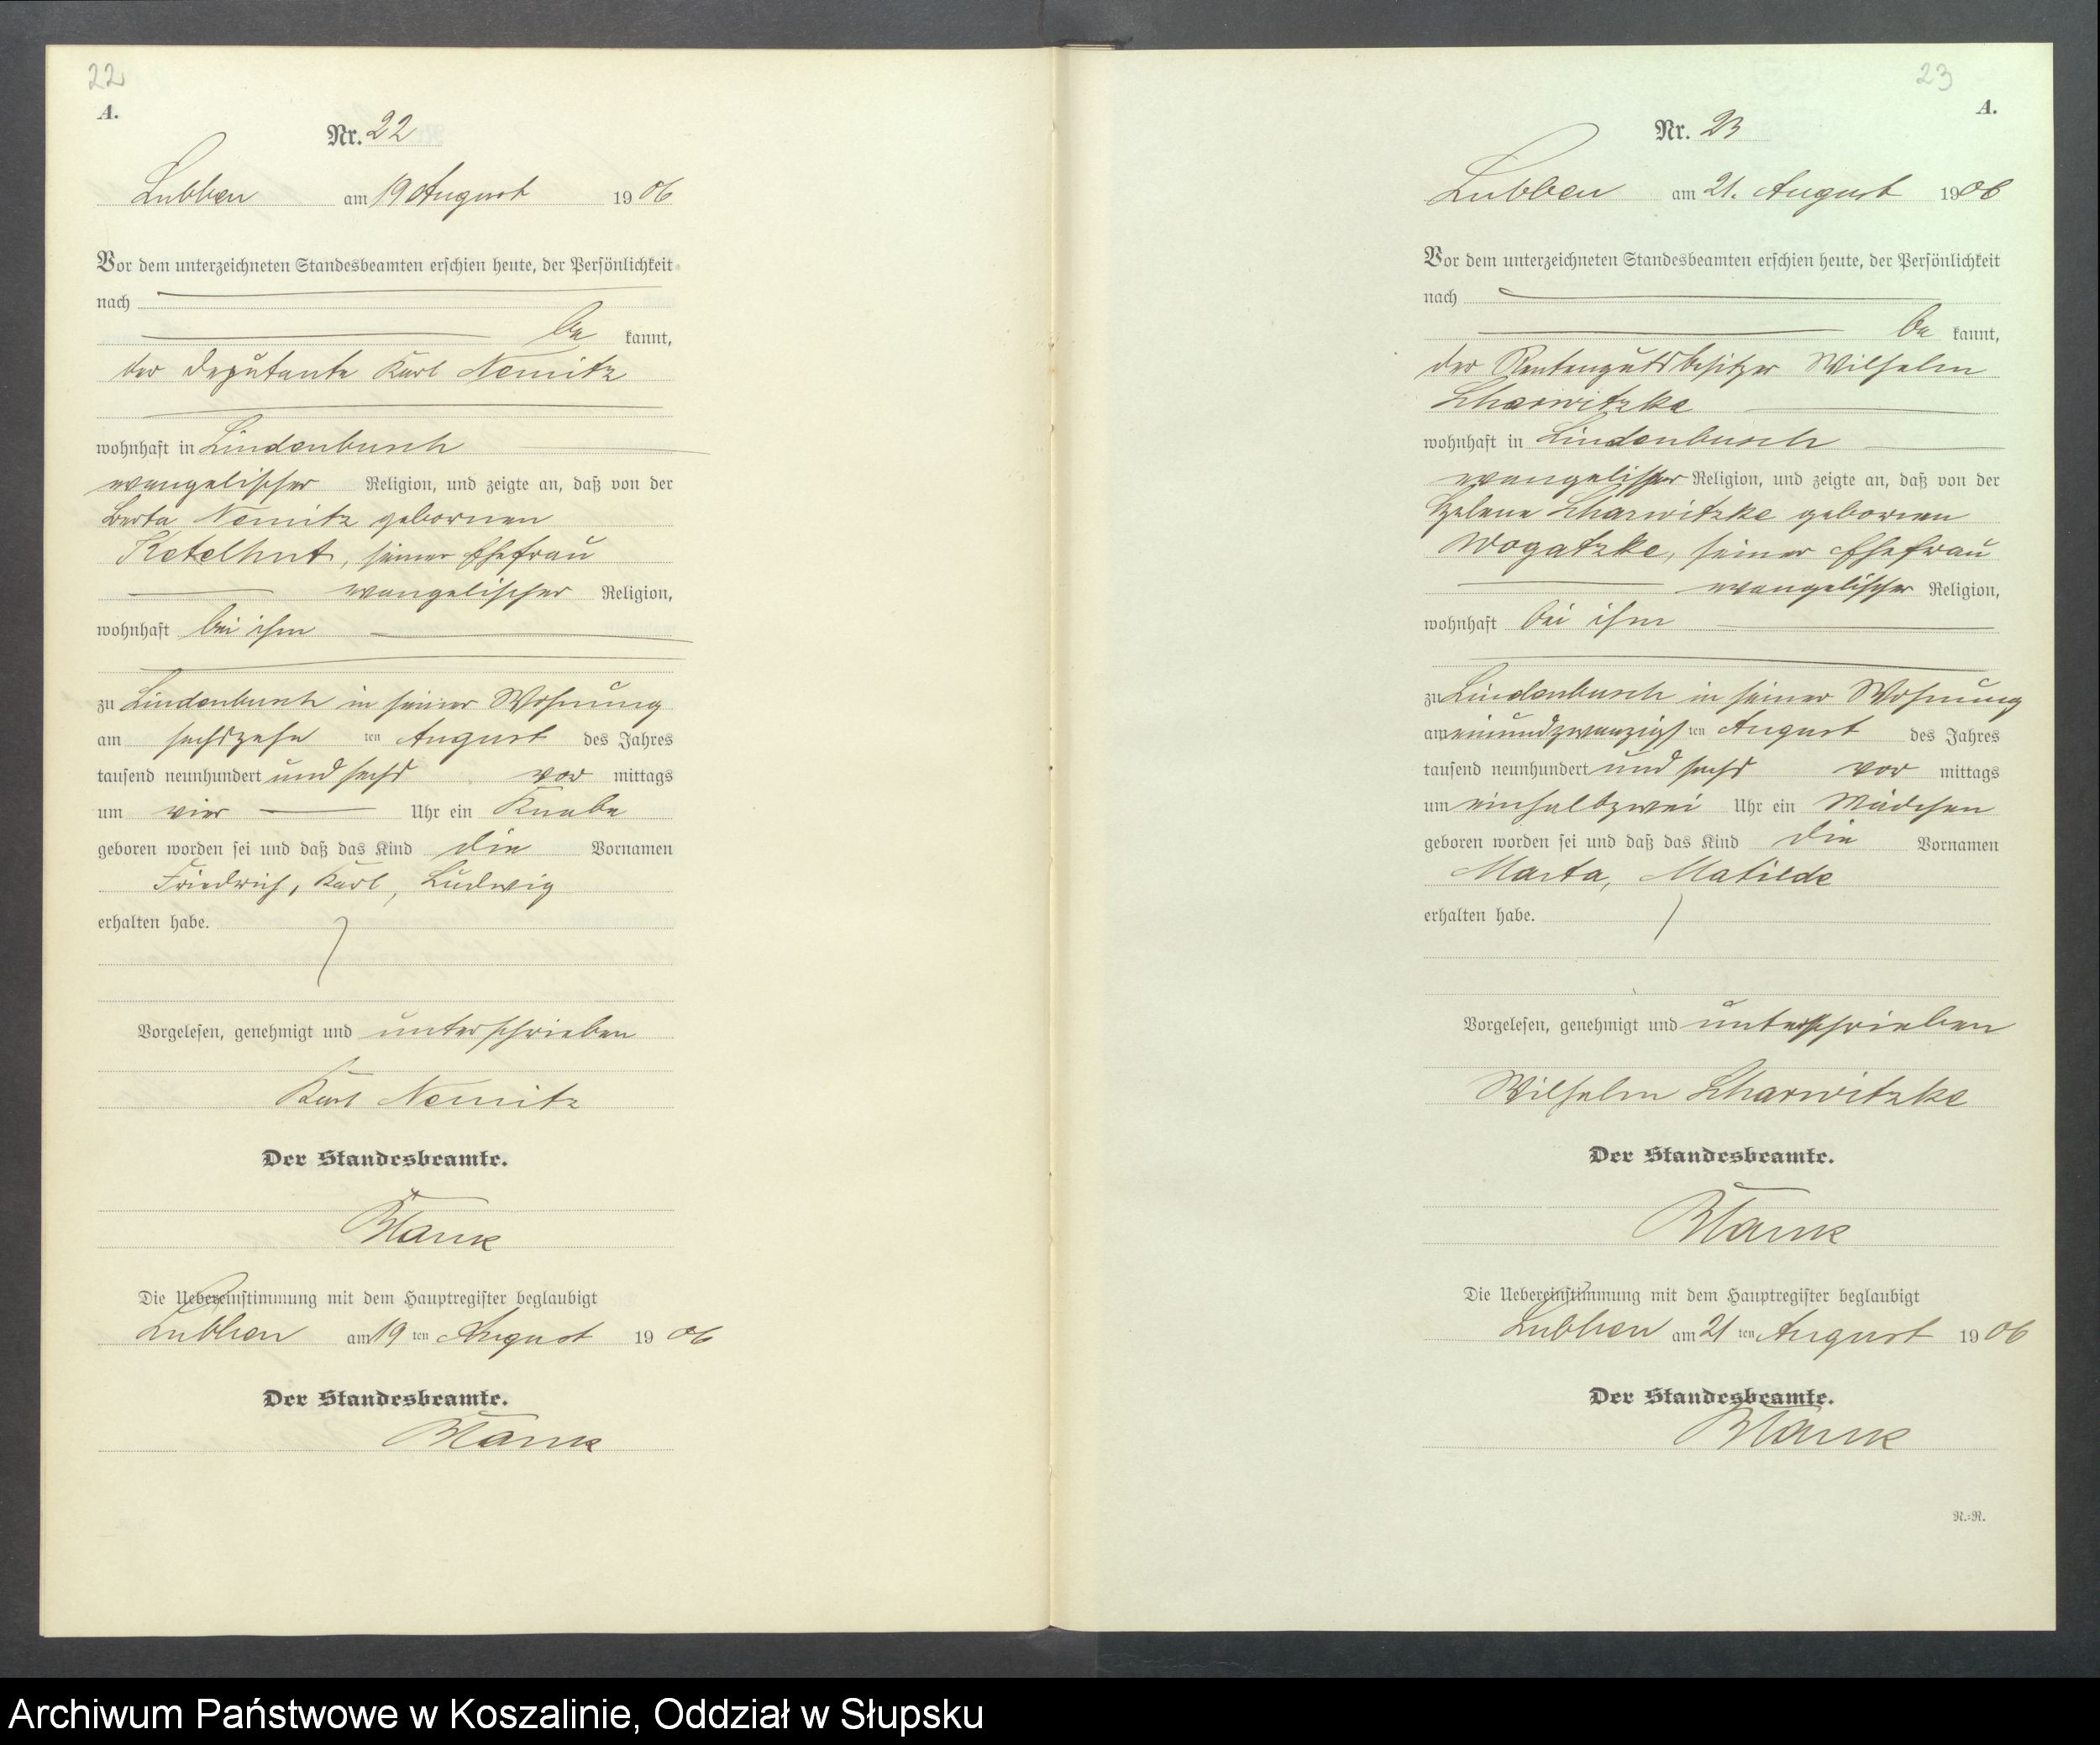 22
A.
Nr. 22
Lubben am 19 August 1906
Vor dem unterzeichneten Standesbeamten erschien heute, der Persönlichkeit
nach
be kannt,
der Deputante Karl Nemitz
wohnhaft in Lindenbusch
evangelischer Religion, und zeigte an, daß von der
Berta Nemitz gebornen
Ketelhut, seiner Ehefrau
evangelischer Religion,
wohnhaft bei ihm
zu Lindenbusch in seiner Wohnung
am sechszehn ten August des Jahres
tausend neunhundert und sechs vor mittags
um vier Uhr ein Knabe
geboren worden sei und daß das Kind die Vornamen
Friedrich, Karl, Ludwig
erhalten habe.
Vorgelesen, genehmigt und unterschrieben
Karl Nemitz
Der Standesbeamte.
Blank
Die Uebereinstimmung mit dem Hauptregister beglaubigt
Lubben am 19 ten August 1906
Der Standesbeamte.
Blank
23
A.
Nr. 23
Lubben am 21. August 1906
Vor dem unterzeichneten Standesbeamten erschien heute, der Persönlichkeit
nach
be kannt,
der Rentengutsbesitzer Wilhelm
Scharwitzke
wohnhaft in Lindenbusch
evangelischer Religion, und zeigte an, daß von der
Helene Scharwitzke gebornen
Wogatzke, seiner Ehefrau
evangelischer Religion,
wohnhaft bei ihm
zu Lindenbusch in seiner Wohnung
am einundzwanzigs ten August des Jahres
tausend neunhundert und sechs vor mittags
um einhalbzwei Uhr ein Mädchen
geboren worden sei und daß das Kind die Vornamen
Marta, Matilde
erhalten habe.
Vorgelesen, genehmigt und unterschrieben
Wilhelm Scharwitzke
Der Standesbeamte.
Blank
Die Uebereinstimmung mit dem Hauptregister beglaubigt
Lubben am 21 ten August 1906
Der Standesbeamte.
Blank
R.=R.
Archiwum Państwowe w Koszalinie, Oddział w Słupsku